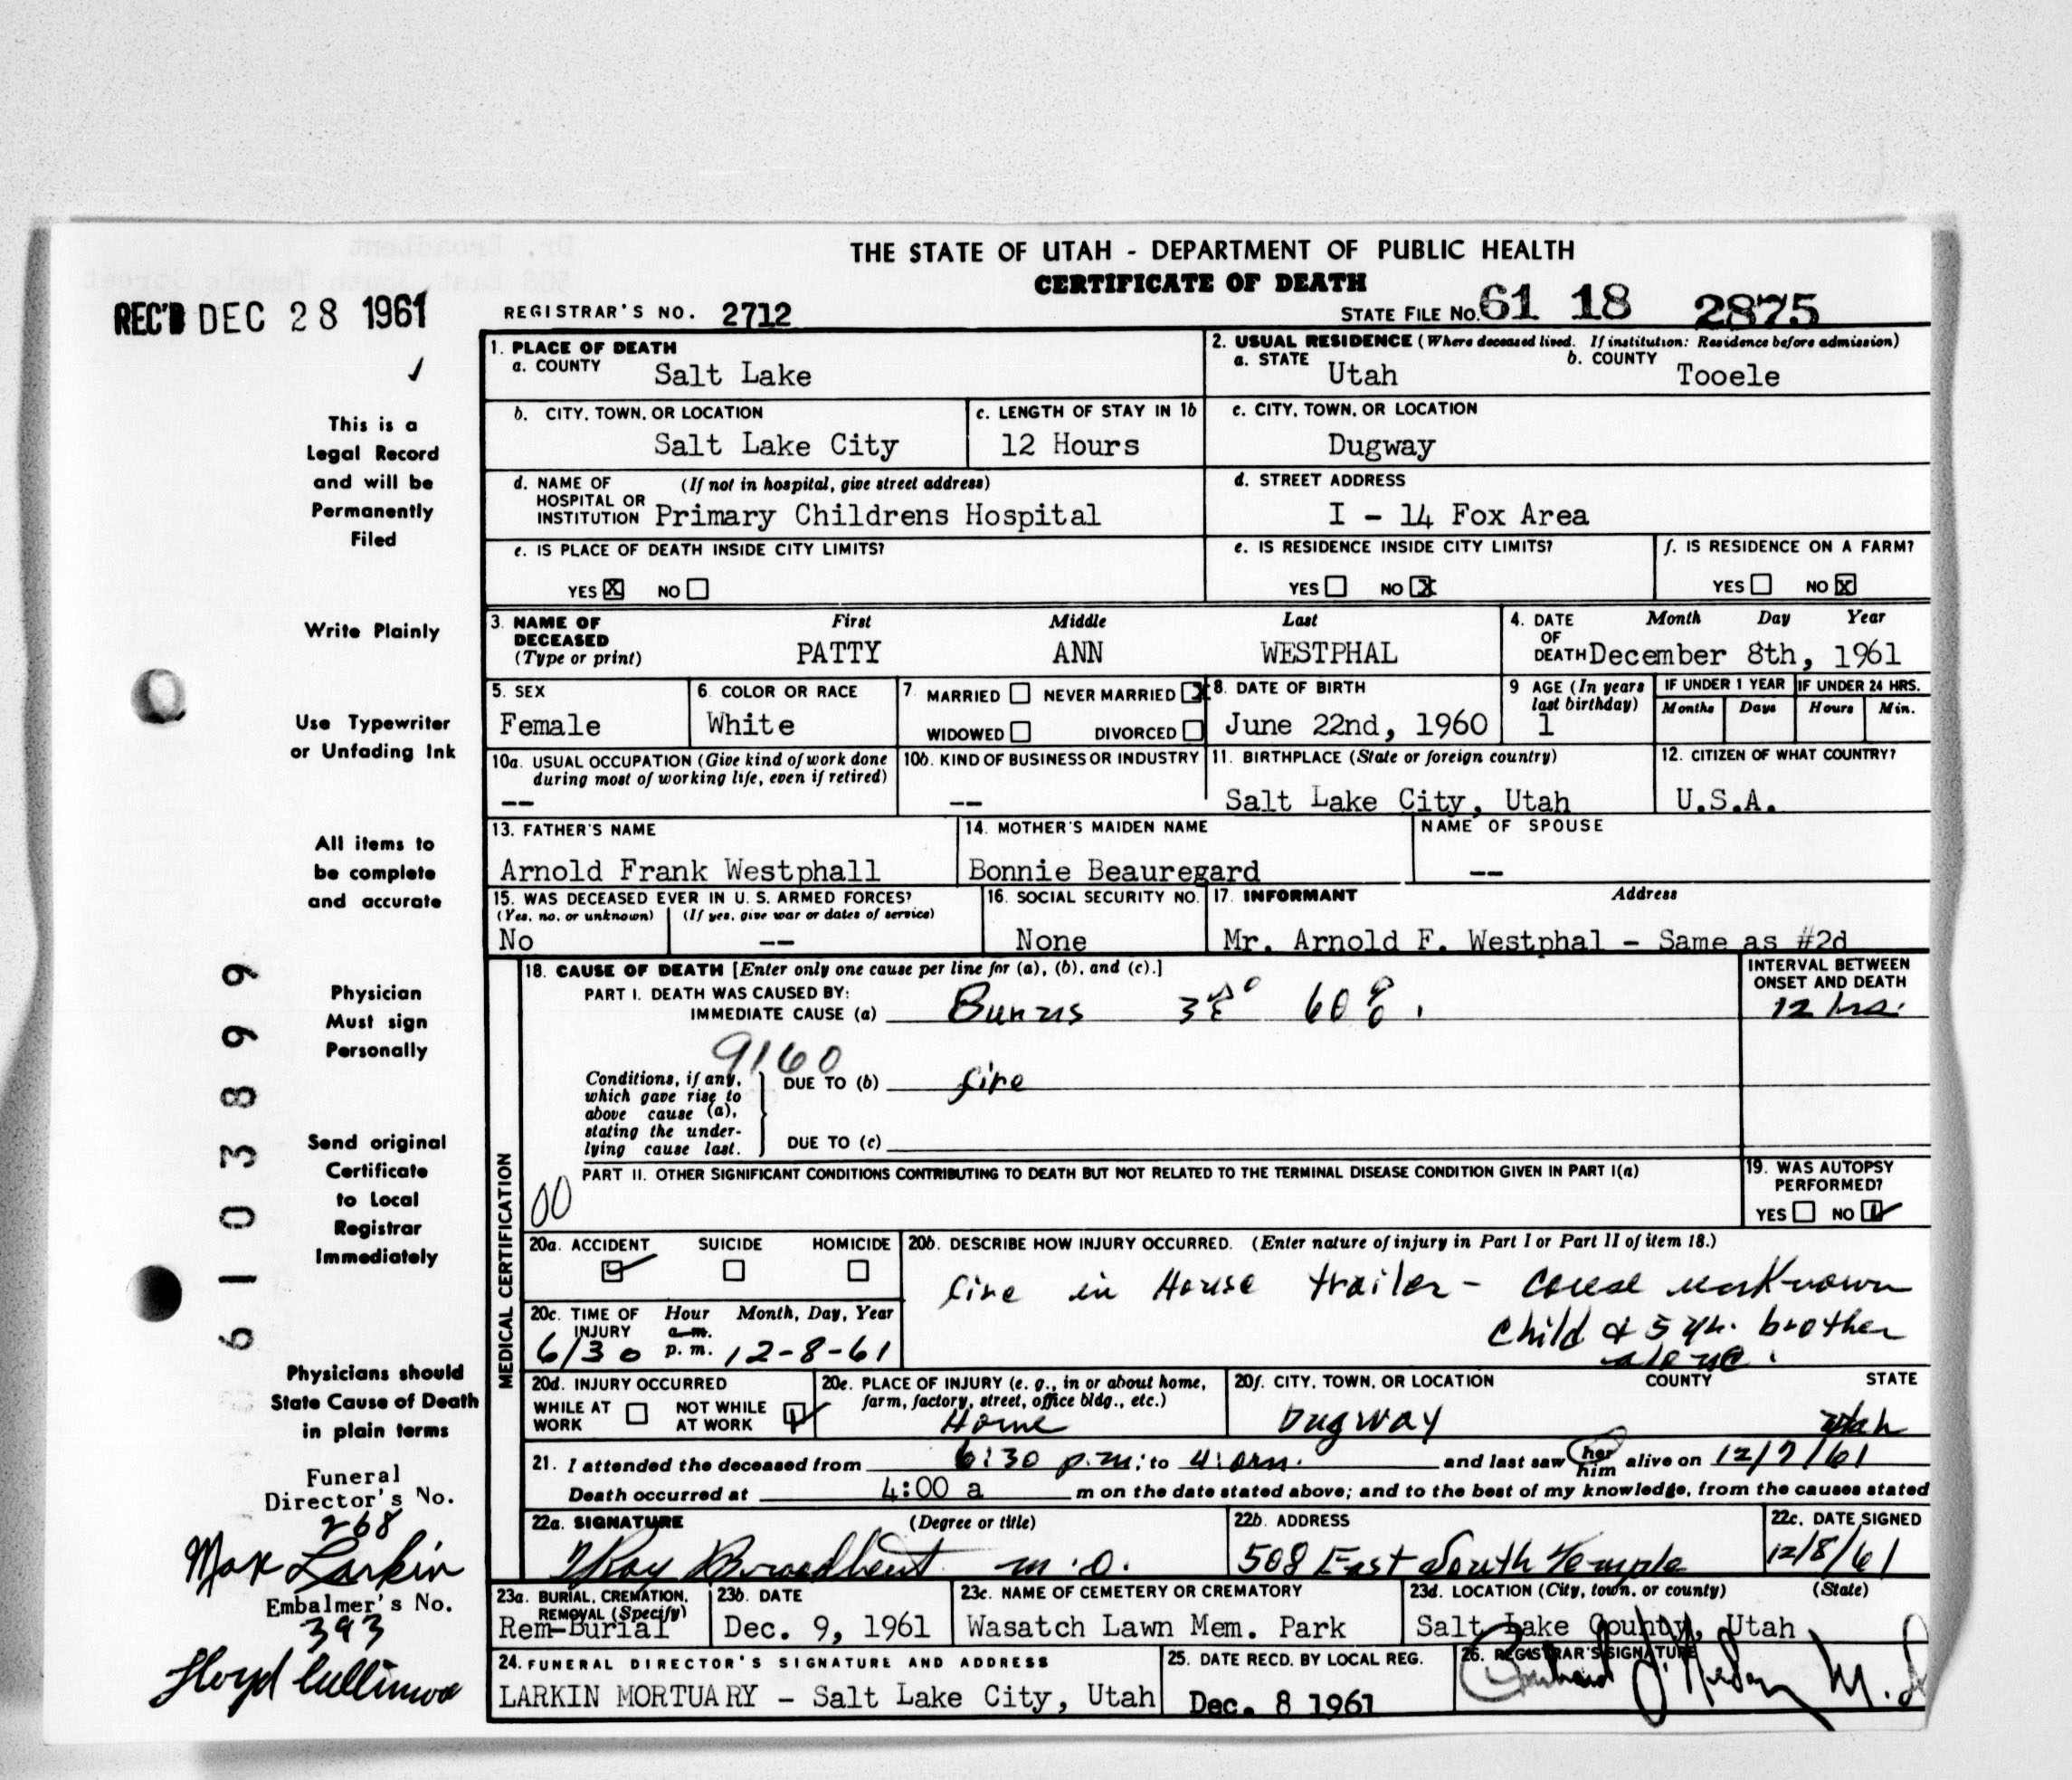 THE STATE OF UTAH - DEPARTMENT OF PUBLIC HEALTH
CERTIFICATE OF DEATH
REC'D DEC 28 1961
REGISTRAR'S NO. 2712
STATE FILE NO. 61 18 2875
1. PLACE OF DEATH
a. COUNTY Salt Lake
2. USUAL RESIDENCE (Where deceased lived. If institution: Residence before admission)
a. STATE Utah b. COUNTY Tooele
b. CITY, TOWN, OR LOCATION Salt Lake City
c. LENGTH OF STAY IN 1b 12 Hours
c. CITY, TOWN, OR LOCATION Dugway
d. NAME OF HOSPITAL OR INSTITUTION (If not in hospital, give street address) Primary Childrens Hospital
d. STREET ADDRESS I - 14 Fox Area
e. IS PLACE OF DEATH INSIDE CITY LIMITS? YES X NO
e. IS RESIDENCE INSIDE CITY LIMITS? YES NO X
f. IS RESIDENCE ON A FARM? YES NO X
3. NAME OF DECEASED (Type or print) First PATTY Middle ANN Last WESTPHAL
4. DATE OF DEATH Month Day Year December 8th, 1961
5. SEX Female
6. COLOR OR RACE White
7. MARRIED NEVER MARRIED X WIDOWED DIVORCED
8. DATE OF BIRTH June 22nd, 1960
9 AGE (In years last birthday) 1
IF UNDER 1 YEAR Months Days
IF UNDER 24 HRS. Hours Min.
10a. USUAL OCCUPATION (Give kind of work done during most of working life, even if retired) --
10b. KIND OF BUSINESS OR INDUSTRY --
11. BIRTHPLACE (State or foreign country) Salt Lake City, Utah
12. CITIZEN OF WHAT COUNTRY? U.S.A.
13. FATHER'S NAME Arnold Frank Westphall
14. MOTHER'S MAIDEN NAME Bonnie Beauregard
NAME OF SPOUSE --
15. WAS DECEASED EVER IN U. S. ARMED FORCES? (Yes, no, or unknown) No (If yes, give war or dates of service) --
16. SOCIAL SECURITY NO. None
17. INFORMANT Address Mr. Arnold F. Westphal - Same as #2d
MEDICAL CERTIFICATION
18. CAUSE OF DEATH [Enter only one cause per line for (a), (b), and (c).]
INTERVAL BETWEEN ONSET AND DEATH
PART I. DEATH WAS CAUSED BY:
IMMEDIATE CAUSE (a) Burns 3° 60%. 12 hrs.
9160
Conditions, if any, which gave rise to above cause (a), stating the underlying cause last.
DUE TO (b) fire
DUE TO (c)
PART II. OTHER SIGNIFICANT CONDITIONS CONTRIBUTING TO DEATH BUT NOT RELATED TO THE TERMINAL DISEASE CONDITION GIVEN IN PART I(a)
00
19. WAS AUTOPSY PERFORMED? YES NO
20a. ACCIDENT SUICIDE HOMICIDE
20b. DESCRIBE HOW INJURY OCCURRED. (Enter nature of injury in Part I or Part II of item 18.)
fire in House trailer - cause unknown
child & 5 yr. brother
alone.
20c. TIME OF INJURY Hour a.m. p.m. Month, Day, Year
6/30 12-8-61
20d. INJURY OCCURRED WHILE AT WORK NOT WHILE AT WORK
20e. PLACE OF INJURY (e. g., in or about home, farm, factory, street, office bldg., etc.) Home
20f. CITY, TOWN, OR LOCATION COUNTY STATE
Dugway Utah
21. I attended the deceased from 6:30 p.m. to 4: am. and last saw her him alive on 12/7/61
Death occurred at 4:00 a m on the date stated above; and to the best of my knowledge, from the causes stated
22a. SIGNATURE (Degree or title) Ray Broadbent M.D.
22b. ADDRESS 508 East South Temple
22c. DATE SIGNED 12/8/61
23a. BURIAL, CREMATION, REMOVAL (Specify) Rem-Burial
23b. DATE Dec. 9, 1961
23c. NAME OF CEMETERY OR CREMATORY Wasatch Lawn Mem. Park
23d. LOCATION (City, town, or county) (State) Salt Lake County, Utah
24. FUNERAL DIRECTOR'S SIGNATURE AND ADDRESS
LARKIN MORTUARY - Salt Lake City, Utah
25. DATE RECD. BY LOCAL REG. Dec. 8 1961
26. REGISTRAR'S SIGNATURE M.D
This is a
Legal Record
and will be
Permanently
Filed
Write Plainly
Use Typewriter
or Unfading Ink
All items to
be complete
and accurate
Physician
Must sign
Personally
Send original
Certificate
to Local
Registrar
Immediately
Physicians should
State Cause of Death
in plain terms
Funeral
Director's No.
268
Max Larkin
Embalmer's No.
393
Lloyd
6103899